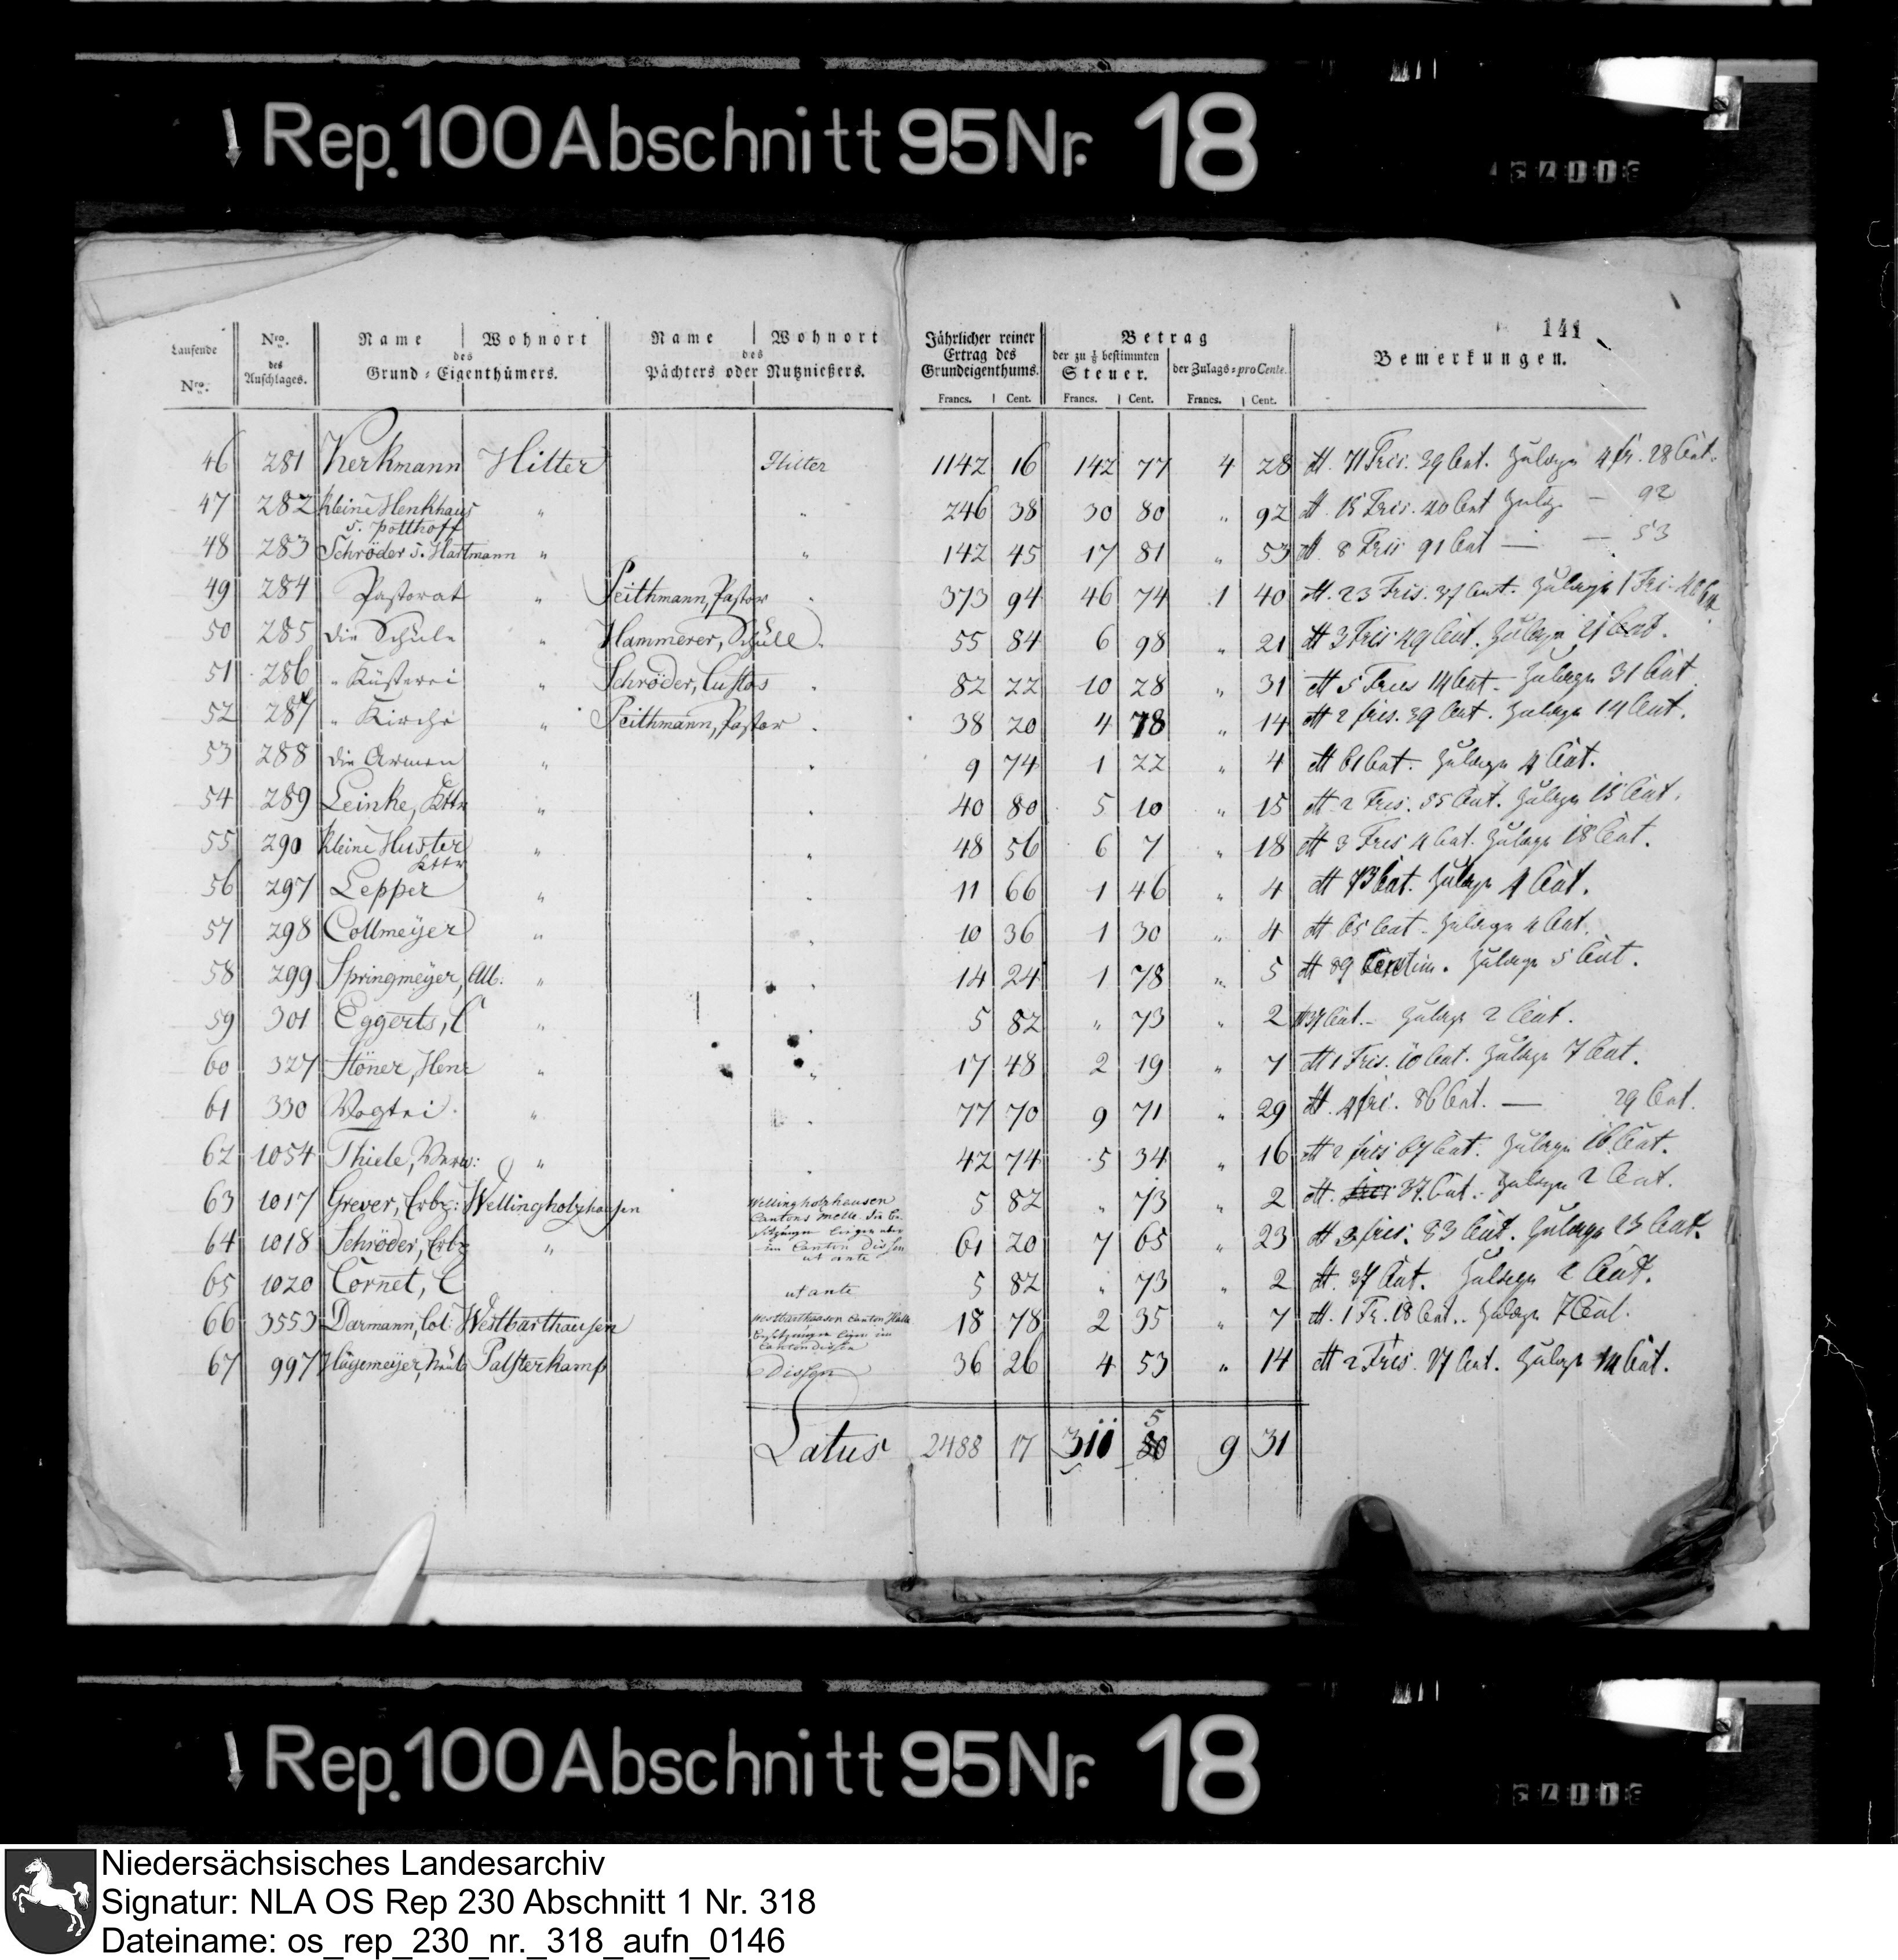 Rep.100Abschnitt 95Nr. 18
141
Laufende Nro. | Nro. des Anschlages. | Name | Wohnort des Grund-Eigenthümers. | Name | Wohnort des Pächters oder Nutznießers. | Jährlicher reiner Ertrag des Grundeigenthums. Francs. | Cent. | Betrag der zu ⅛ bestimmten Steuer. Francs. | Cent. | der Zulags-pro Cente. Francs. | Cent. | Bemerkungen.
46 281 Kerkmann Hilter Hilter 1142 16 142 77 4 28 71 Frcs. 39 Cent. Zulage 4 fr. 28 Cent.
47 282 kleine Henkhaus " " 246 38 30 80 " 92 15 Frcs. 40 Cent Zulage — 92
s. Potthoff
48 283 Schröder s. Hartmann " " 142 45 17 81 " 53 8 Frcs 91 Cent — — 53
49 284 Pastorat " Peithmann, Pastor " 373 94 46 74 1 40 23 Frcs. 37 Cent. Zulage 1 Fr. 40 Cent.
50 285 die Schule " Hammerer, Schull. 55 84 6 98 " 21 3 Frcs 49 Cent. Zulage 21 Cent.
51 286 " Küsterei " Schröder, Custos " 82 22 10 28 " 31 5 Frcs 14 Cent. Zulage 31 Cent
52 287 " Kirche " Peithmann, Pastor " 38 20 4 78 " 14 2 frcs. 39 Cent. Zulage 14 Cent.
53 288 die Armen " " 9 74 1 22 " 4 61 Cent. Zulage 4 Cent.
54 289 Leinke, Kttr " " 40 80 5 10 " 15 2 Frcs. 55 Cent. Zulage 15 Cent.
55 290 kleine Huster " " 48 56 6 7 " 18 3 Frcs 4 Cent. Zulage 18 Cent.
Kttr
56 297 Lepper " " 11 66 1 46 " 4 73 Cent. Zulage 4 Cent.
57 298 Collmeÿer " " 10 36 1 30 " 4 65 Cent. Zulage 4 Cent.
58 299 Springmeÿer, Alb: " " 14 24 1 78 " 5 89 Centim. Zulage 5 Cent.
59 301 Eggerts, C " 5 82 " 73 " 2 37 Cent. Zulage 2 Cent.
60 327 Höner, Henr " " 17 48 2 19 " 7 1 Frcs. 10 Cent. Zulage 7 Cent.
61 330 Vogtei " " 77 70 9 71 " 29 4 frc. 86 Cent. — 29 Cent.
62 1054 Thiele, " " 42 74 5 34 " 16 2 frcs 67 Cent. Zulage 16 Cent.
63 1017 Grever, Erbz: Wellingholzhausen Wellingholzhausen Cantons Melle. die Besitzungen liegen aber im Canton Dissen 5 82 " 73 " 2 37 Cent. Zulage 2 Cent.
64 1018 Schröder, Erbz " ut ante 61 20 7 65 " 23 3 frcs. 83 Cent. Zulage 23 Cent.
65 1020 Cornet, C ut ante 5 82 " 73 " 2 37 Cent. Zulage 2 Cent.
66 3553 Darmann, Col: Westbarthausen Westbarthausen Canton Halle Besitzungen liegen im Canton Dissen 18 78 2 35 " 7 1 Fr. 18 Cent. Zulage 7 Cent.
67 997 Hügemeÿer, Palsterkamp Dissen 36 26 4 53 " 14 2 Frcs. 27 Cent. Zulage 14 Cent.
Latus 2488 17 311 5 9 31
Rep.100Abschnitt 95Nr. 18
Niedersächsisches Landesarchiv
Signatur: NLA OS Rep 230 Abschnitt 1 Nr. 318
Dateiname: os_rep_230_nr._318_aufn_0146